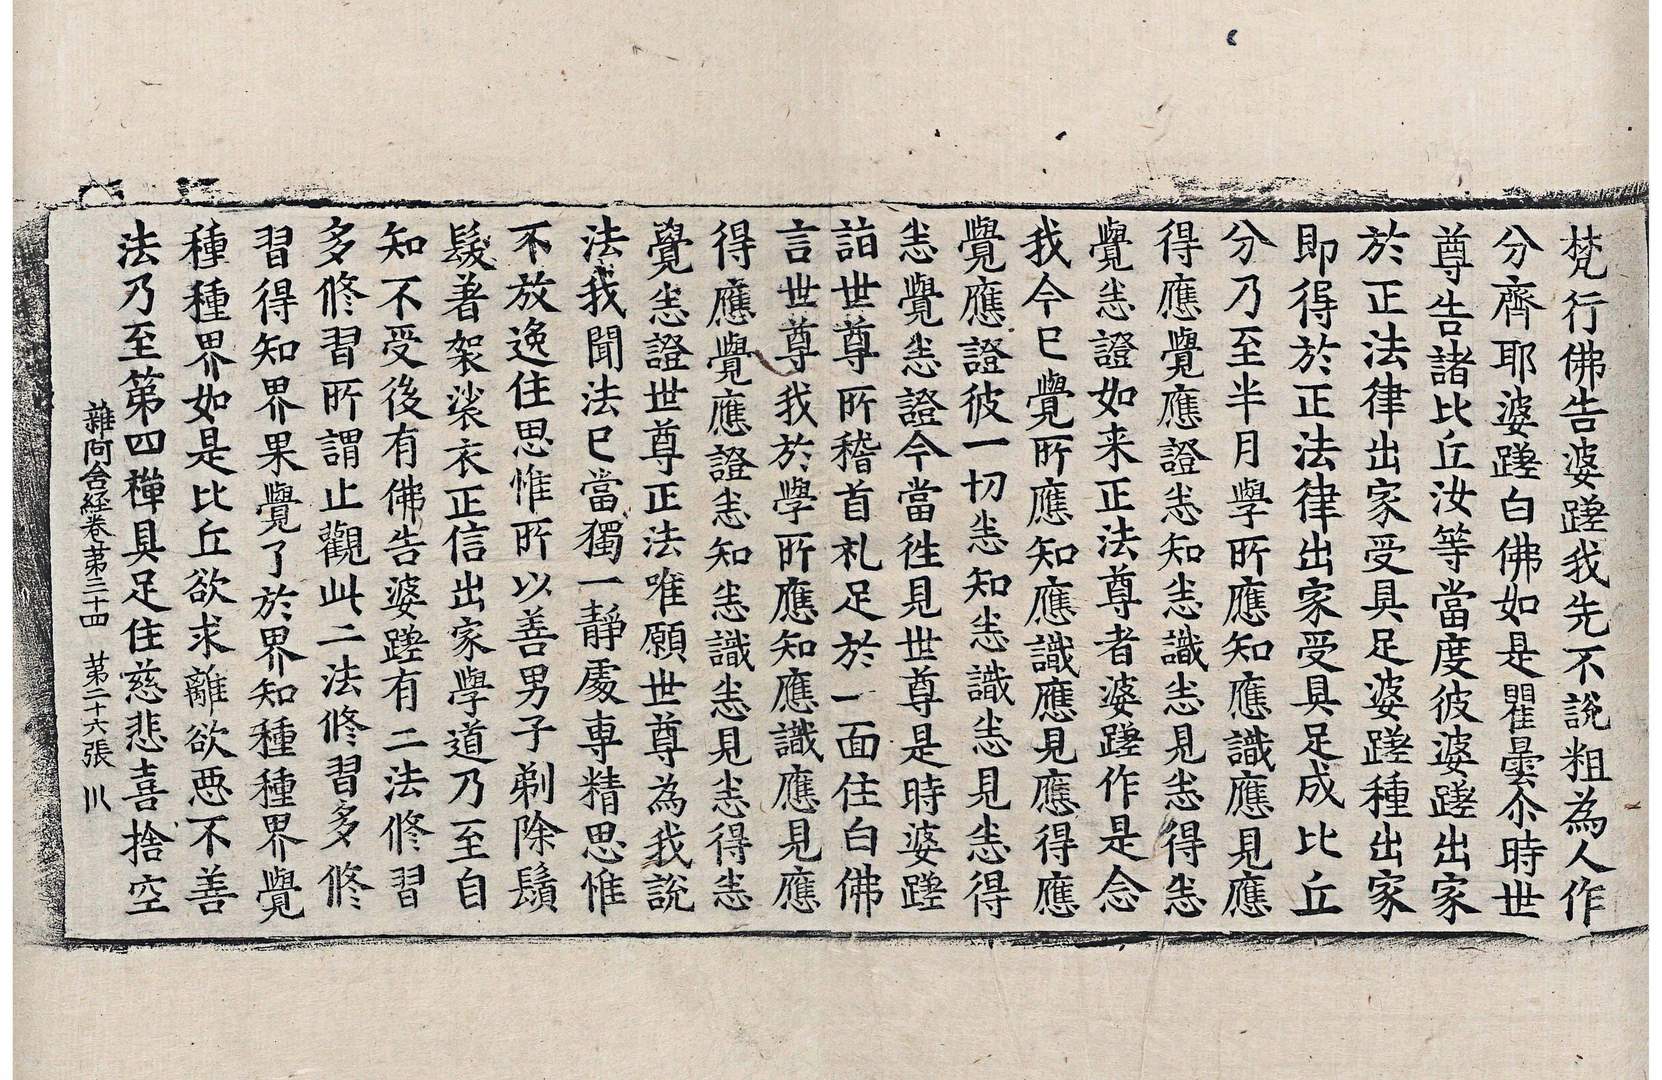 梵行佛告婆蹉我先不說粗為人作
分齊耶婆蹉白佛如是瞿曇尒時世
尊告諸比丘汝等當度彼婆蹉出家
於正法律出家受具足婆蹉種出家
即得於正法律出家受具足成比丘
分乃至半月學所應知應識應見應
得應覺應證悉知悉識悉見悉得悉
覺悉證如来正法尊者婆蹉作是念
我今已覺所應知應識應見應得應
覺應證彼一切悉知悉識悉見悉得
悉覺悉證今當徃見世尊是時婆蹉
詣世尊所稽首礼足於一面住白佛
言世尊我於學所應知應識應見應
得應覺應證悉知悉識悉見悉得悉
覺悉證世尊正法唯願世尊為我說
法我聞法已當獨一靜處専精思惟
不放逸住思惟所以善男子剃除鬚
髮著袈裟衣正信出家學道乃至自
知不受後有佛告婆蹉有二法修習
多修習所謂止觀此二法修習多修
習得知界果覺了於界知種種界覺
種種界如是比丘欲求離欲惡不善
法乃至第四禪具足住慈悲喜捨空
雜阿含經卷苐三十四　第二十六張　川